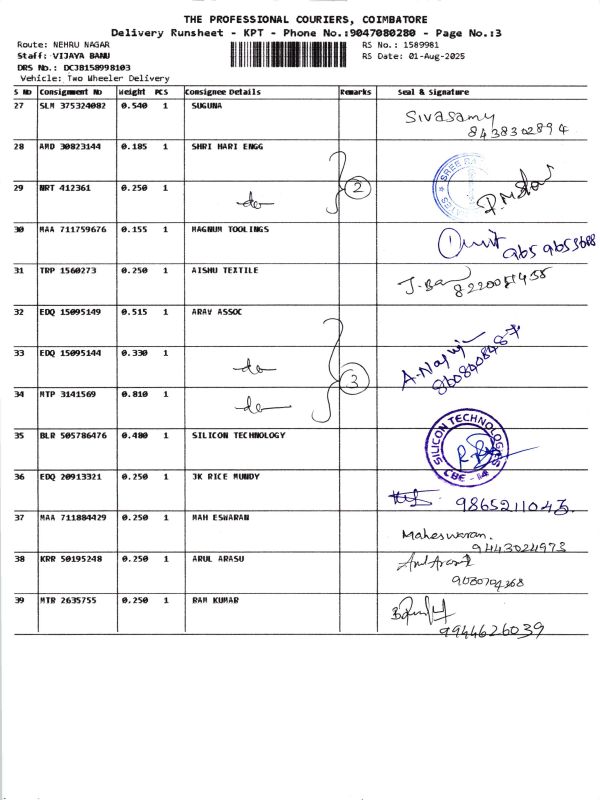 THE PROFESSIONAL COURIERS, COIMBATORE
Delivery Runsheet - KPT - Phone No.:9047080280 - Page No.:3
Route: NEHRU NAGAR
RS No.: 1589981
Staff: VIJAYA BANU
RS Date: 01-Aug-2025
DRS No.: DC3B158998103
Vehicle: Two Wheeler Delivery
S No Consignment No Weight PCS Consignee Details Remarks Seal & Signature
27 SLM 375324082 0.540 1 SUGUNA Sivasamy
8438302894
28 AMD 30823144 0.185 1 SHRI HARI ENGG
29 NRT 412361 0.250 1 do 2
30 MAA 711759676 0.155 1 MAGNUM TOOLINGS
31 TRP 1560273 0.250 1 AISHU TEXTILE
32 EDQ 15095149 0.515 1 ARAV ASSOC
33 EDQ 15095144 0.330 1 do 3
34 MTP 3141569 0.810 1 do
35 BLR 505786476 0.480 1 SILICON TECHNOLOGY SILICON TECHNOLOGIES CBE - 14
36 EDQ 20913321 0.250 1 JK RICE MUNDY
9865211043.
37 MAA 711884429 0.250 1 MAH ESWARAN Maheswaran.
9443024973
38 KRR 50195248 0.250 1 ARUL ARASU Arul Arasu
39 MTR 2635755 0.250 1 RAM KUMAR
9944626039